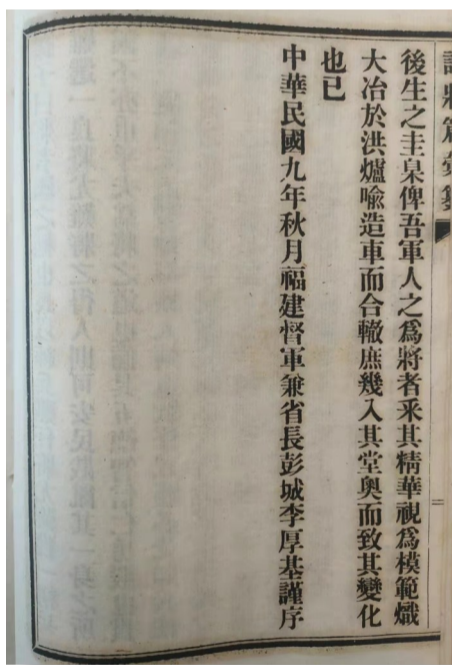 後生之圭臬俾吾軍人之爲將者釆其精華視爲模範熾
大冶於洪爐喩造車而合轍庶幾入其堂奧而致其變化
也已
中華民國九年秋月福建督軍兼省長彭城李厚基謹序